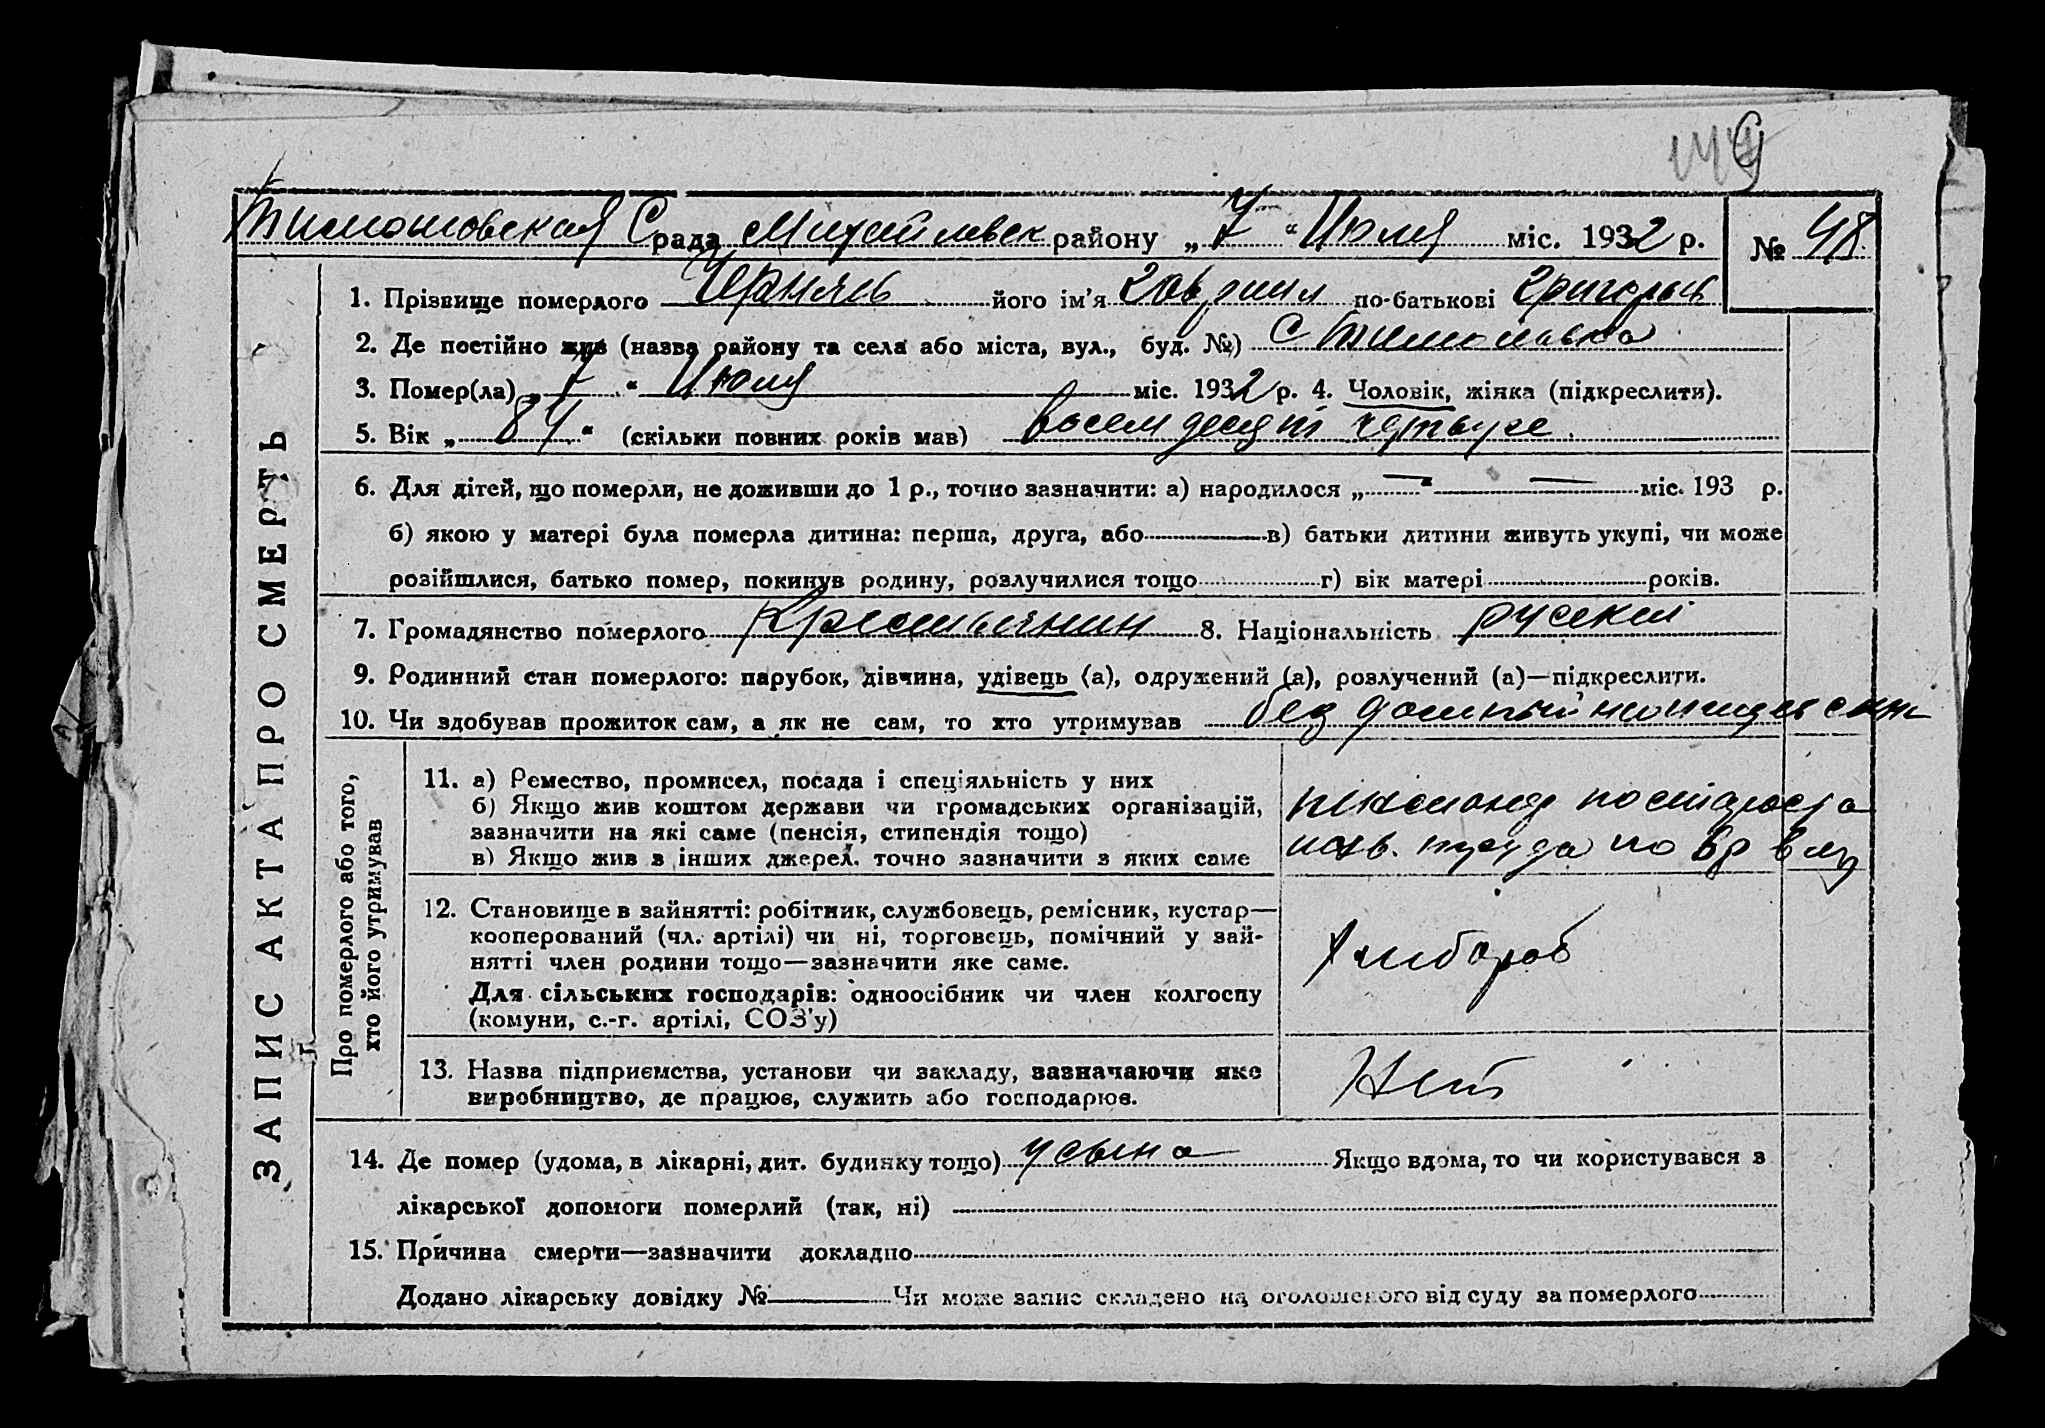 Тимошовская С рада Михайловск району „ 7 “ Июля міс. 1932 р. № 48
1. Прізвище померлого Черняев його ім'я по-батькові Григорьев
2. Де постійно жив (назва району та села або міста, вул., буд. №) с Тимошовка
3. Помер(ла) „ 7 “ Июля міс. 1932 р. 4. Чоловік, жінка (підкреслити).
5. Вік „ 84 “ (скільки повних років мав) восемдесят четыре
6. Для дітей, що померли, не доживши до 1 р., точно зазначити: а) народилося „ — “ — міс. 193 р.
б) якою у матері була померла дитина: перша, друга, або — в) батьки дитини живуть укупі, чи може
розійшлися, батько помер, покинув родину, розлучилися тощо г) вік матері років.
7. Громадянство померлого Крестьянин 8. Національність русский
9. Родинний стан померлого: парубок, дівчина, удівець (а), одружений (а), розлучений (а)—підкреслити.
10. Чи здобував прожиток сам, а як не сам, то хто утримував
11. а) Ремество, промисел, посада і спеціяльність у них
б) Якщо жив коштом держави чи громадських організацій,
зазначити на які саме (пенсія, стипендія тощо)
в) Якщо жив з інших джерел, точно зазначити з яких саме
12. Становище в зайнятті: робітник, службовець, ремісник, кустар—
кооперований (чл. артілі) чи ні, торговець, помічний у зай-
нятті член родини тощо—зазначити яке саме.
Для сільських господарів: одноосібник чи член колгоспу
(комуни, с.-г. артілі, СОЗ'у)
Хлебороб
13. Назва підприємства, установи чи закладу, зазначаючи яке
виробництво, де працює, служить або господарює.
Нет
14. Де помер (удома, в лікарні, дит. будинку тощо) у сына Якщо вдома, то чи користувався з
лікарської допомоги померлий (так, ні)
15. Причина смерти—зазначити докладно
Додано лікарську довідку № Чи може запис складено на оголошеного від суду за померлого
ЗАПИС АКТА ПРО СМЕРТЬ
Про померлого або того,
хто його утримував